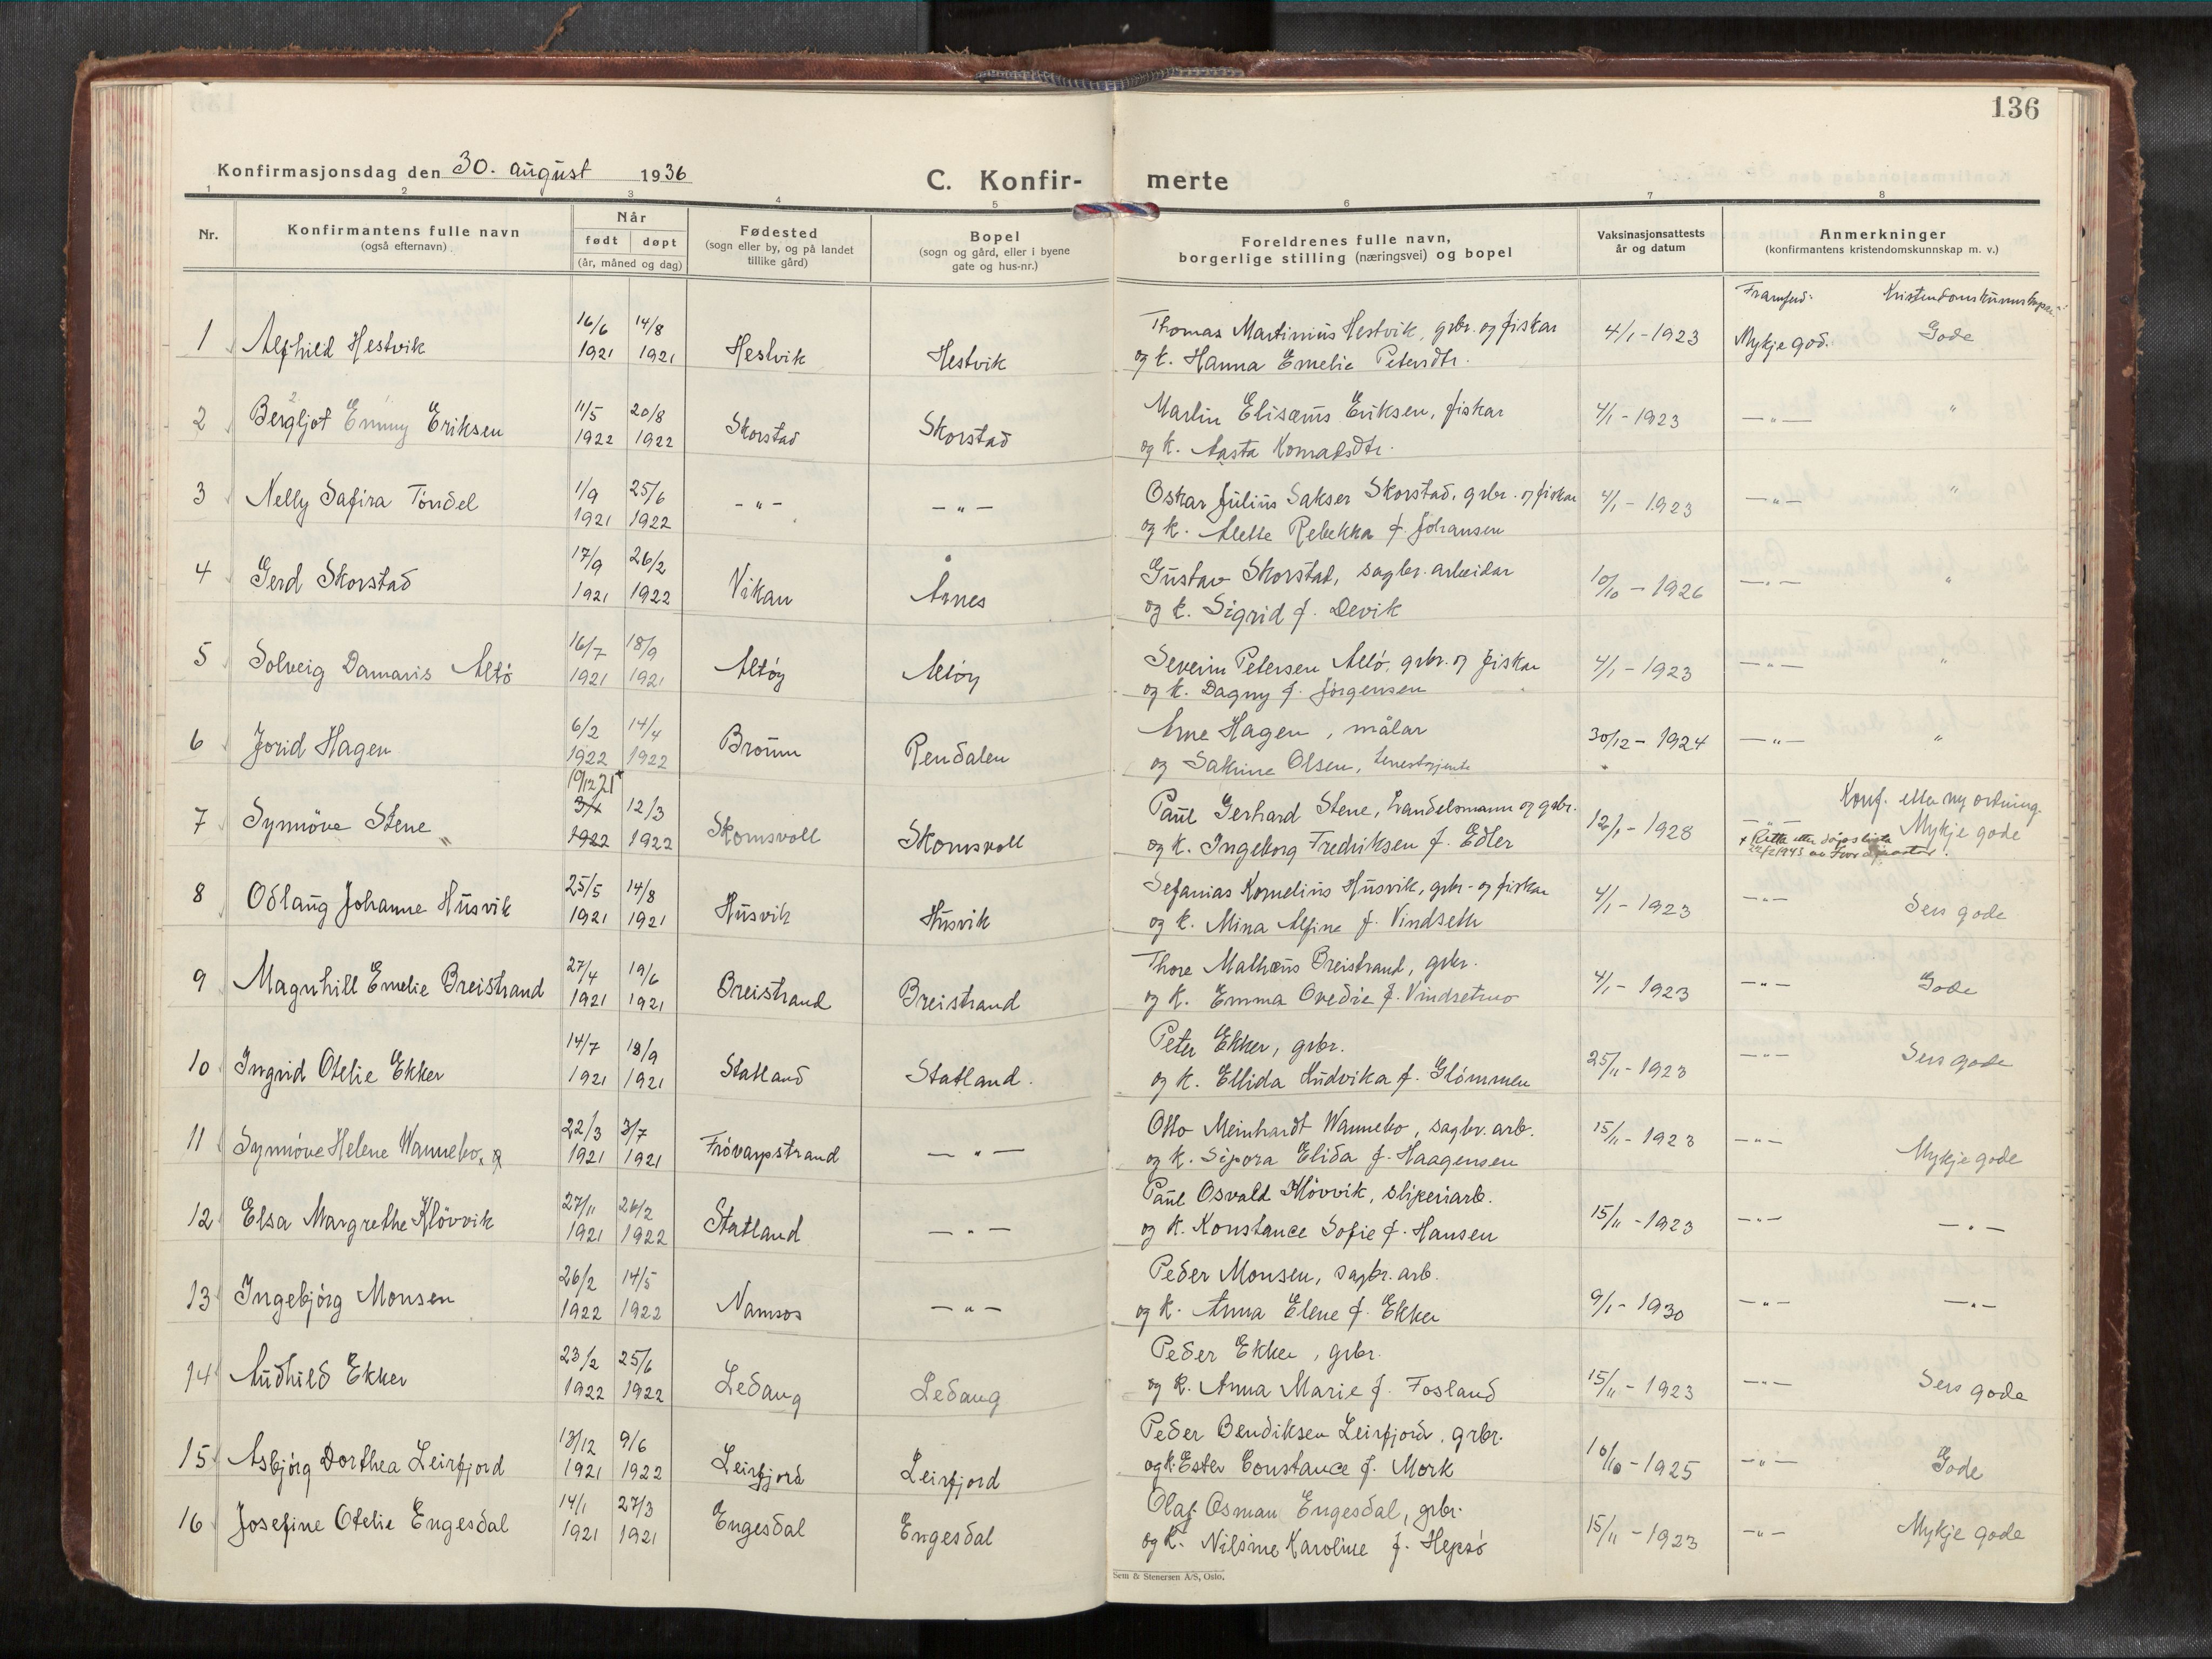 136
Konfirmasjonsdag den 30. august 1936
C. Konfir- merte
1 2 3 4 5 6 7 8
Nr.
Konfirmantens fulle navn
(også efternavn)
Når
født døpt
(år, måned og dag)
Fødested
(sogn eller by, og på landet
tillike gård)
Bopel
(sogn og gård, eller i byene
gate og hus-nr.)
Foreldrenes fulle navn,
borgerlige stilling (næringsvei) og bopel
Vaksinasjonsattests
år og datum
Anmerkninger
(konfirmantens kristendomskunnskap m. v.)
Framferd: Kristendomskunnskapen:
1 Alfhild Hestvik 16/6 1921 14/8 1921 Hestvik Hestvik Thomas Martinius Hestvik, grbr. og fiskar 4/1-1923 Mykje god. Gode
og k. Hanna Emelie Petersdtr.
2 Bergljot Emmy Eriksen 11/5 1922 20/8 1922 Skorstad Skorstad Martin Elisæus Eriksen, fiskar 4/1-1923 —"— "
og k. Aasta Konradsdtr.
3 Nelly Safira Tøndel 1/9 1921 25/6 1922 -"- —"— Oskar Julius Sakser Skorstad, grbr. og fiskar 4/1-1923 —"— "
og k. Alette Rebekka f. Johansen
4 Gerd Skorstad 17/9 1921 26/2 1922 Vikan Årnes Gustav Skorstad, sagbr. arbeidar 10/10-1926 —"— "
og k. Sigrid f. Devik
5 Solveig Damaris Altø 16/7 1921 18/9 1921 Altøy Altøy Severin Petersen Altø, grbr. og fiskar 4/1-1923 —"— "
og k. Dagny f. Jørgensen
6 Jorid Hagen 6/2 1922 14/4 1922 Brønn Rendalen Arne Hagen, målar 30/12-1924 —"— "
og Sakrine Olsen, tenestgjente
7 Synnöve Stene 19/12 21 x 3/1 1922 12/3 1922 Skomsvoll Skomsvoll Paul Gerhard Stene, handelsmann og grbr. 12/1-1928 —"— Konf. etter ny ordning.
og k. Ingeborg Fredriksen f. Edler Mykje gode
x Retta etter dåpslista
8 Odlaug Johanne Husvik 25/5 1921 14/8 1921 Husvik Husvik Sefanias Kornelius Husvik, grbr- og fiskar 4/1-1923 —"— Sers gode
og k. Mina Alfine f. Vindseth
9 Magnhill Emelie Breistrand 27/4 1921 19/6 1921 Breistrand Breistrand Thore Mathæus Breistrand, grbr. 4/1-1923 —"— Gode
og k. Emma Ovedie f. Vindsetmo
10 Ingrid Otelie Ekker 14/7 1921 18/9 1921 Statland Statland. Peter Ekker, grbr. 25/11-1923 —"— Sers gode
og k. Ellida Hudvika f. Glømmen
11 Synnöve Helene Wannebo 22/3 1921 3/7 1921 Frøvarpstrand —"— Otto Meinhardt Wannebo, sagbr. arb. 15/11-1923 —"— Mykje gode
og k. Sipora Elida f. Haagensen
12 Elsa Margrethe Kløvvik 27/11 1921 26/2 1922 Statland —"— Paul Osvald Kløvvik, sliperiarb. 15/11-1923 —"— —"—
og k. Konstance Sofie f. Hansen
13 Ingebjørg Monsen 26/2 1922 14/5 1922 Namsos —"— Peder Monsen, sagbr. arb. 9/1-1930 —"— —"—
og k. Anna Elene f. Ekker
14 Audhild Ekker 23/2 1922 25/6 1922 Ledang Ledang Peder Ekker, grbr. 15/11-1923 —"— Sers gode
og k. Anna Marie f. Fosland
15 Asbjørg Dorthea Leirfjord 13/12 1921 9/6 1922 Leirfjord Leirfjord Peder Bendiksen Leirfjord, grbr. 10/10-1925 —"— Gode
og k. Ester Constance f. Mork
16 Josefine Otelie Engesdal 14/1 1921 27/3 1921 Engesdal Engesdal Olaf Osman Engesdal, grbr. 15/11-1923 —"— Mykje gode
og k. Nilsine Karoline f. Hepsø
Sem & Stenersen A/S, Oslo.